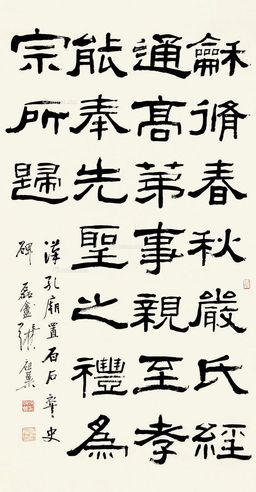 龢脩春秋嚴氏經
通高第事親至孝
能奉先聖之禮為
宗所歸
漢孔廟置百石卒史
碑 磊盦張祖翼